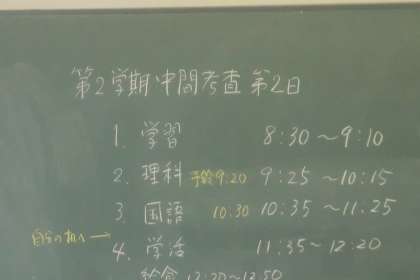 第2学期中間考査 第2日
1. 学習 8:30～9:10
2. 理科 予鈴9:20 9:25～10:15
3. 国語 10:30 10:35～11:25
自分の机へ→
4. 学活 11:35～12:20
給食 12:20～12:50